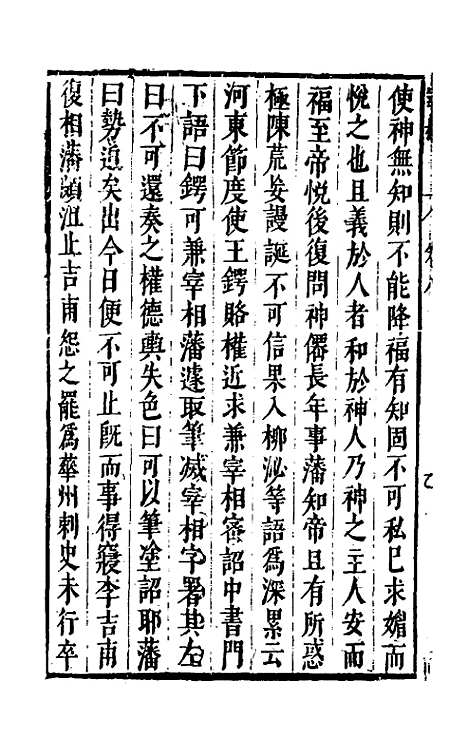 使神無知則不能降福有知固不可私已求媚而
悅之也且義於人者和於神人乃神之主人安而
福至帝悅後復問神僊長年事藩知帝且有所惑
極陳荒妄謾誕不可信果入柳泌等語爲深累云
河東節度使王鍔賂權近求兼宰相密詔中書門
下語曰鍔可兼宰相藩遽取筆滅宰相字署其左
曰不可還奏之權德輿失色曰可以筆塗詔耶藩
曰勢迫矣出今日便不可止旣而事得寢李吉甫
復相藩頗沮止吉甫怨之罷爲華州刺史未行卒